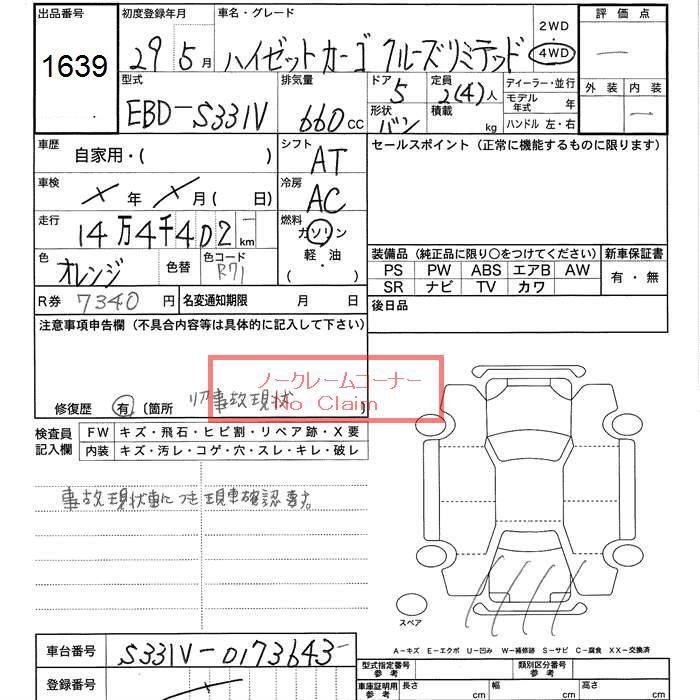 出品番号
1639
初度登録年月
29 5月
車名・グレード
ハイゼットカーゴ クルーズリミテッド
2WD
・
4WD
評価点
―
型式
EBD-S331V
排気量
660cc
ドア
5
形状
バン
定員
2(4)人
積載
kg
ディーラー・並行
モデル年式 年
ハンドル 左・右
外装 内装
―
車歴
自家用・( )
シフト
AT
セールスポイント(正常に機能するものに限ります)
車検
×年×月( 日)
冷房
AC
走行
14万4千402km
燃料
ガソリン
軽・油
( )
色
オレンジ
色替
色コード
R71
装備品(純正品に限り○をつけてください)
新車保証書
PS PW ABS エアB AW
SR ナビ TV カワ
有・無
R券 7340円
名変通知期限 月 日
後日品
注意事項申告欄(不具合内容等は具体的に記入して下さい)
ノークレームコーナー
No Claim
修復歴 有 〔箇所 リア事故現状 〕
検査員記入欄
FW キズ・飛石・ヒビ割・リペア跡・X要
内装 キズ・汚レ・コゲ・穴・スレ・キレ・破レ
事故現状車につき現車確認要す。
スペア
A-キズ E-エクボ U-凹み W-補修跡 S-サビ C-腐食 XX-交換済
車台番号
S331V-0173643
登録番号
型式指定番号
参考
類別区分番号
参考
車庫証明用
参考
長さ cm
幅 cm
高さ cm